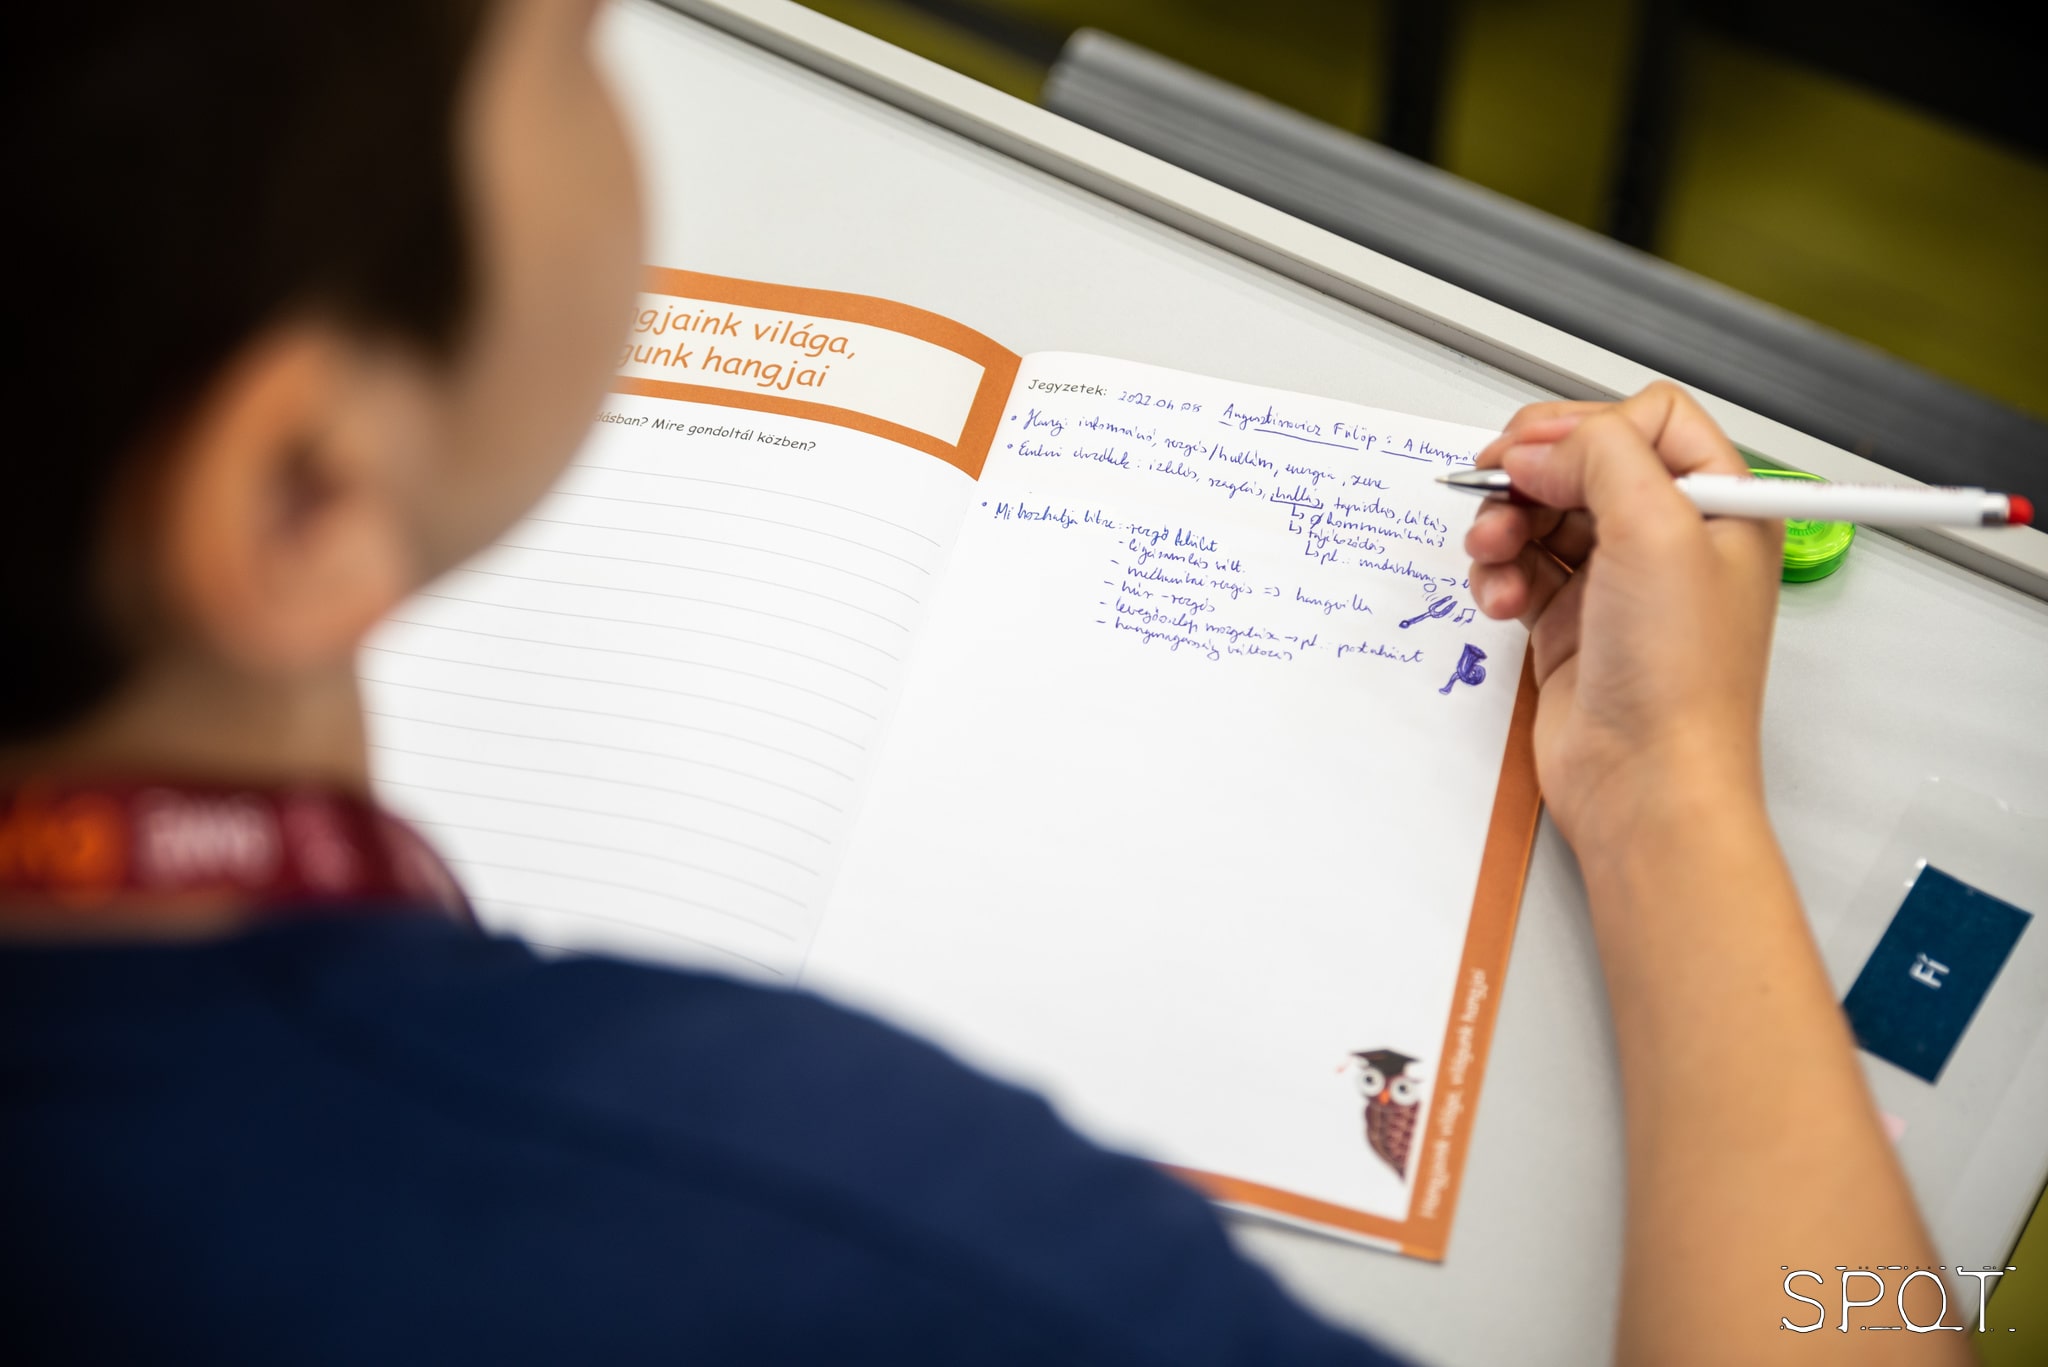 gjaink világa,
gunk hangjai
dásban? Mire gondoltál közben?
Jegyzetek: 2022.04.08 Augusztinovicz Fülöp: A Hangról
• Hang: információ, rezgés/hullám, energia, zene
• Emberi érzékek: ízlelés, szaglás, hallás, tapintás, látás
↳ kommunikáció
↳ tájékozódás
↳ pl.: madárhang →
• Mi hozhatja létre: - rezgő felület
- légáramlás vált.
- mechanikai rezgés => hangvilla
- húr - rezgés
- levegőoszlop mozgatása → pl.: postakürt
- hangmagasság változás
Hangjaink világa, világunk hangjai
Fi
SPOT